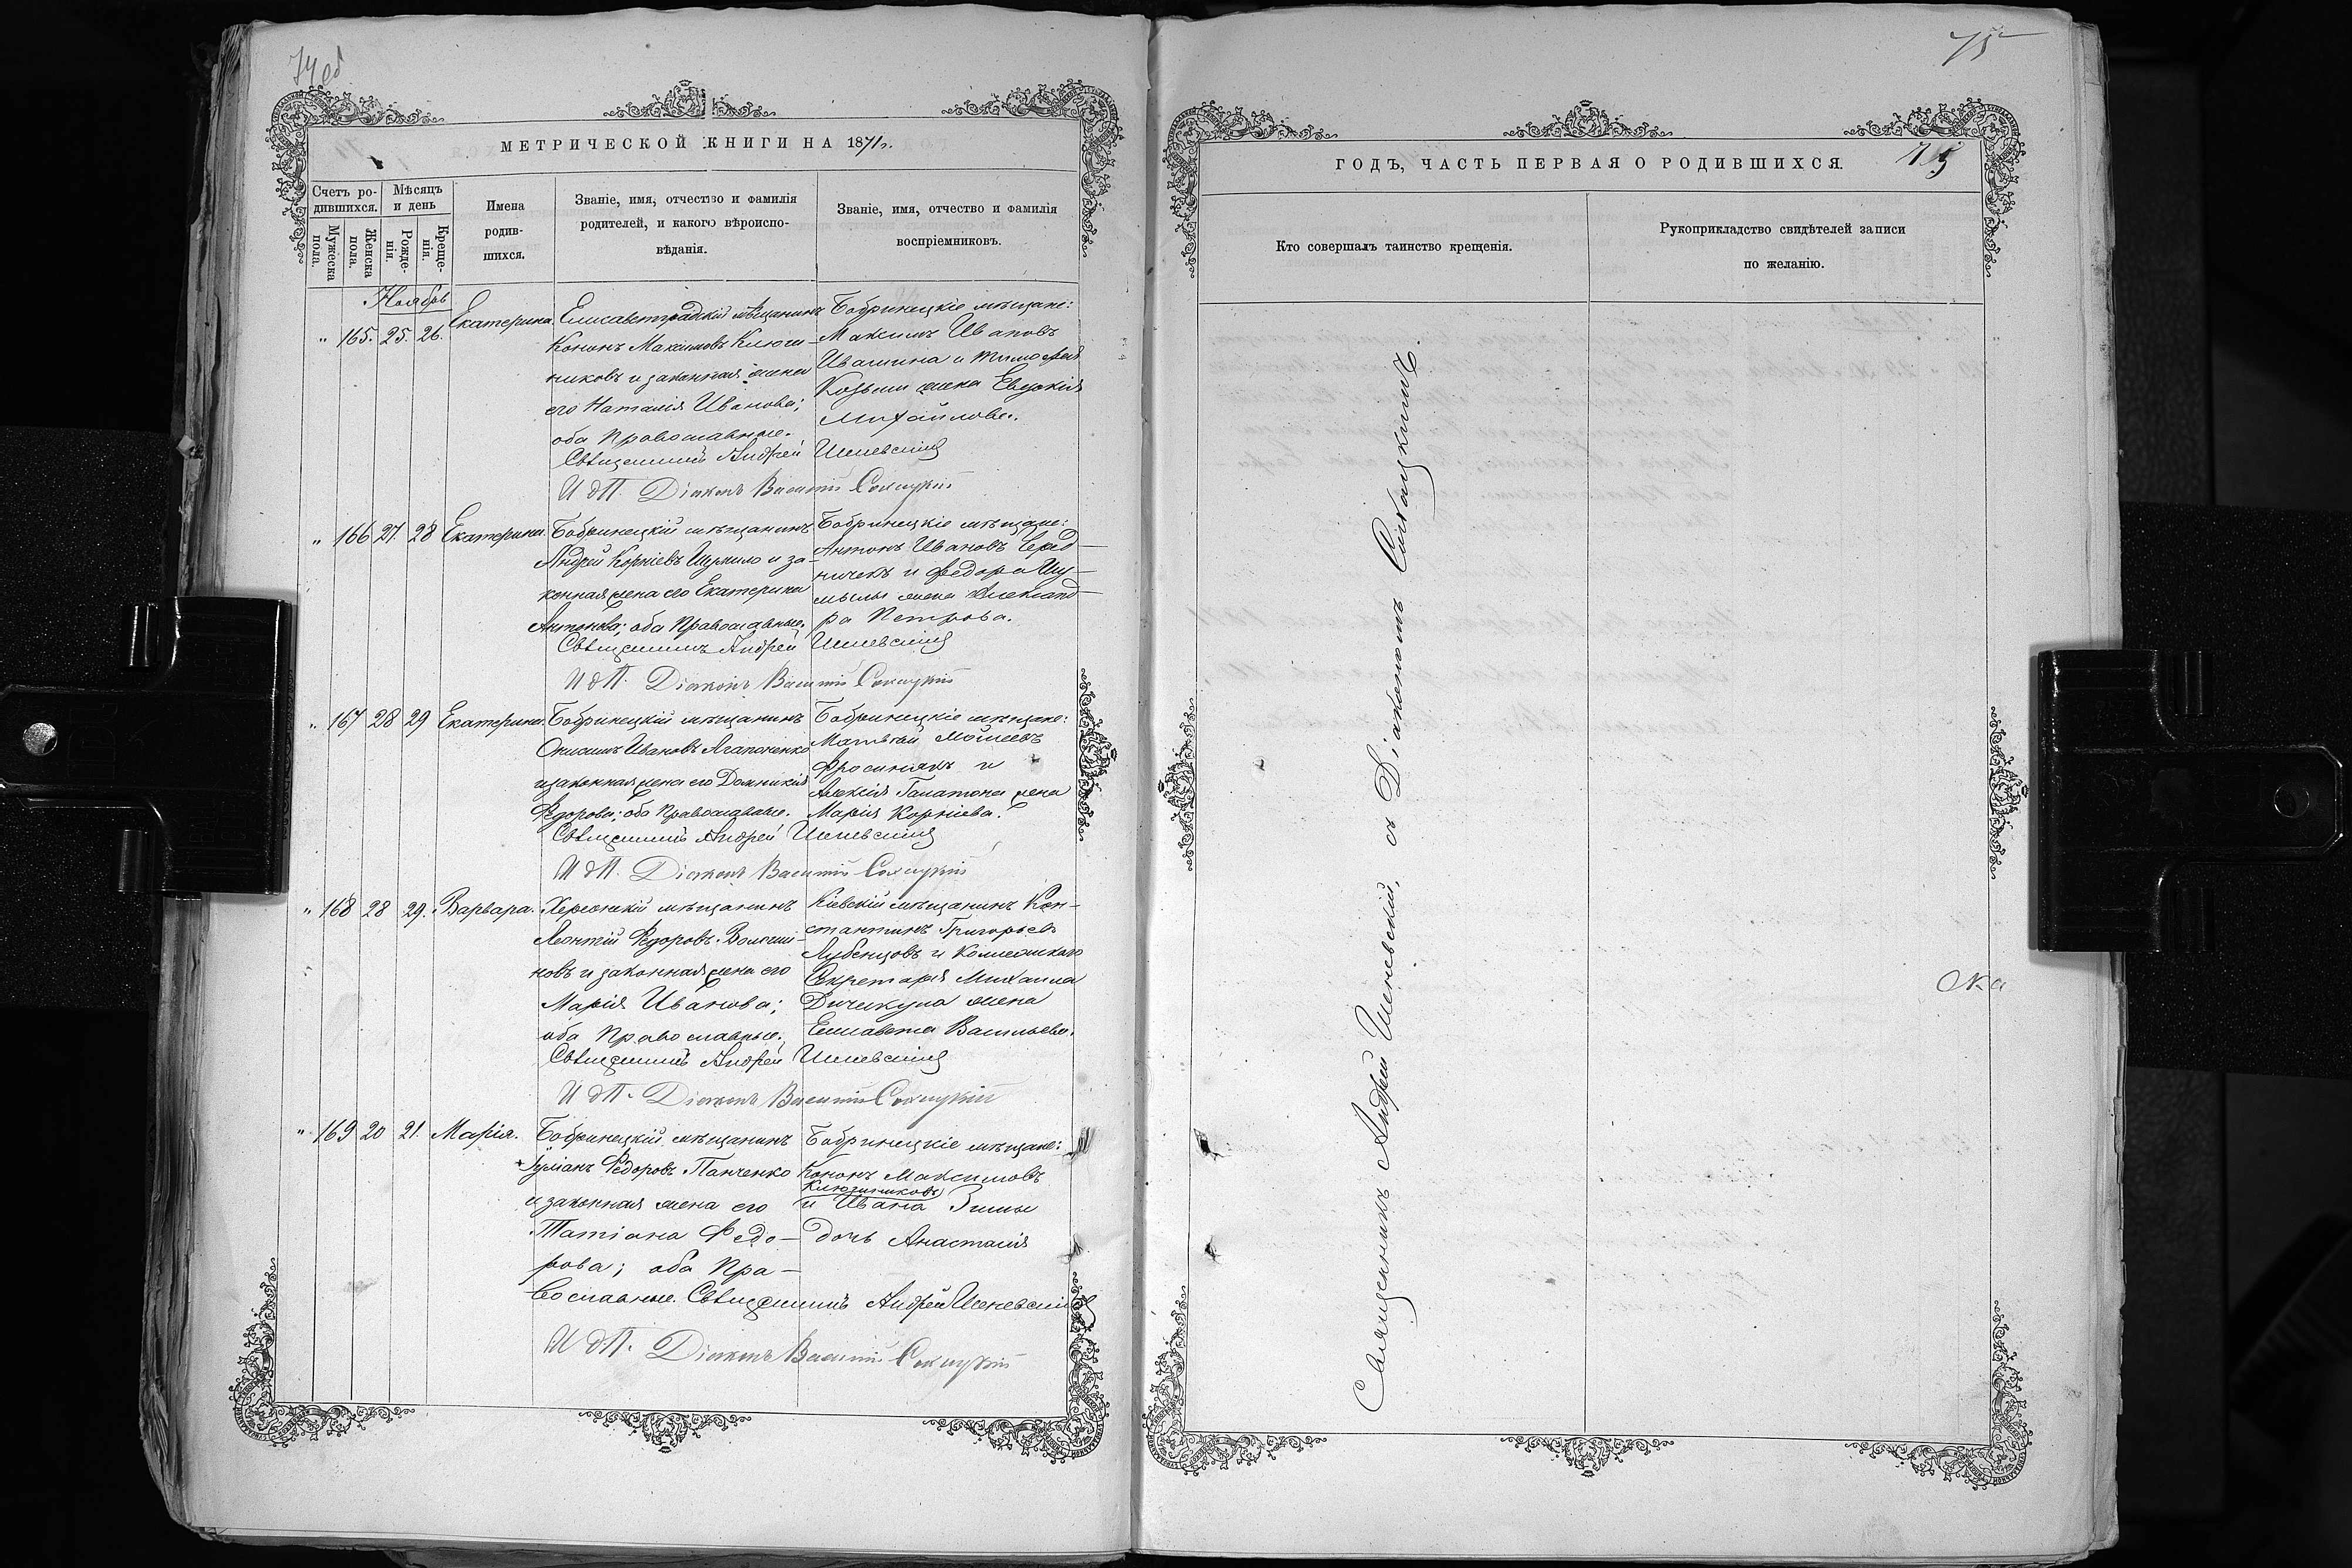 74об
МЕТРИЧЕСКОЙ КНИГИ НА 1871г.
Счетъ ро-
дившихся.
Мѣсяцъ
и день
Мужеска
пола.
Женска
пола.
Рожде-
нія.
Креще-
нія.
Имена
родив-
шихся.
Званіе, имя, отчество и фамилія
родителей, и какого вѣроиспо-
вѣданія.
Званіе, имя, отчество и фамилія
воспріемниковъ.
Ноябрь
" 165. 25. 26. Екатерина.
Елисаветградскій мѣщанинъ
Кононъ Максимовъ Ключ-
никовъ и законная жена
его Наталія Иванова;
оба Православные.
Бобринецкіе мѣщане:
Максимъ Ивановъ
Ивашина и Тимофея
Козьми жена Евдокія
Михайлова.
Священникъ Андрей
И д П. Діаконъ Василій
" 166 27. 28 Екатерина.
Бобринецкій мѣщанинъ
Андрей Корніевъ Шумило и за-
конная жена его Екатерина
Антонова; оба Православные.
Бобринецкіе мѣщане:
Антонъ Ивановъ
и Федора Шу-
мылы жена Александ-
ра Петрова.
Священникъ Андрей
И д П. Діаконъ Василій
" 167 28 29 Екатерина.
Бобринецкій мѣщанинъ
Онисимъ Ивановъ Агапоненко
и законная жена его Домникія
Федорова; оба Православные.
Бобринецкіе мѣщане:
Матвѣй Моисеевъ
и
Алексія жена
Марія Корніева.
Священникъ Андрей
И д П. Діаконъ Василій
" 168 28 29. Варвара.
Херсонскій мѣщанинъ
Леонтій Федоровъ
новъ и законная жена его
Марія Иванова;
оба Православные.
Кіевскій мѣщанинъ Кон-
стантинъ Григорьевъ
Лубенцовъ и Коллежскаго
Секретаря Михаила
Дичикула жена
Елисавета Васильева.
Священникъ Андрей
И д П. Діаконъ Василій
" 169 20 21. Марія.
Бобринецкій мѣщанинъ
Іуліанъ Федоровъ Панченко
и законная жена его
Татіана Федо-
рова; оба Пра-
вославные.
Бобринецкіе мѣщане:
Кононъ Максимовъ
Ключниковъ
и Ивана Зимы
дочь Анастасія
Священникъ Андрей
И д П. Діаконъ Василій
75
ГОДЪ, ЧАСТЬ ПЕРВАЯ О РОДИВШИХСЯ.
75
Кто совершалъ таинство крещенія.
Рукоприкладство свидѣтелей записи
по желанію.
Священникъ Андрей съ Діакономъ